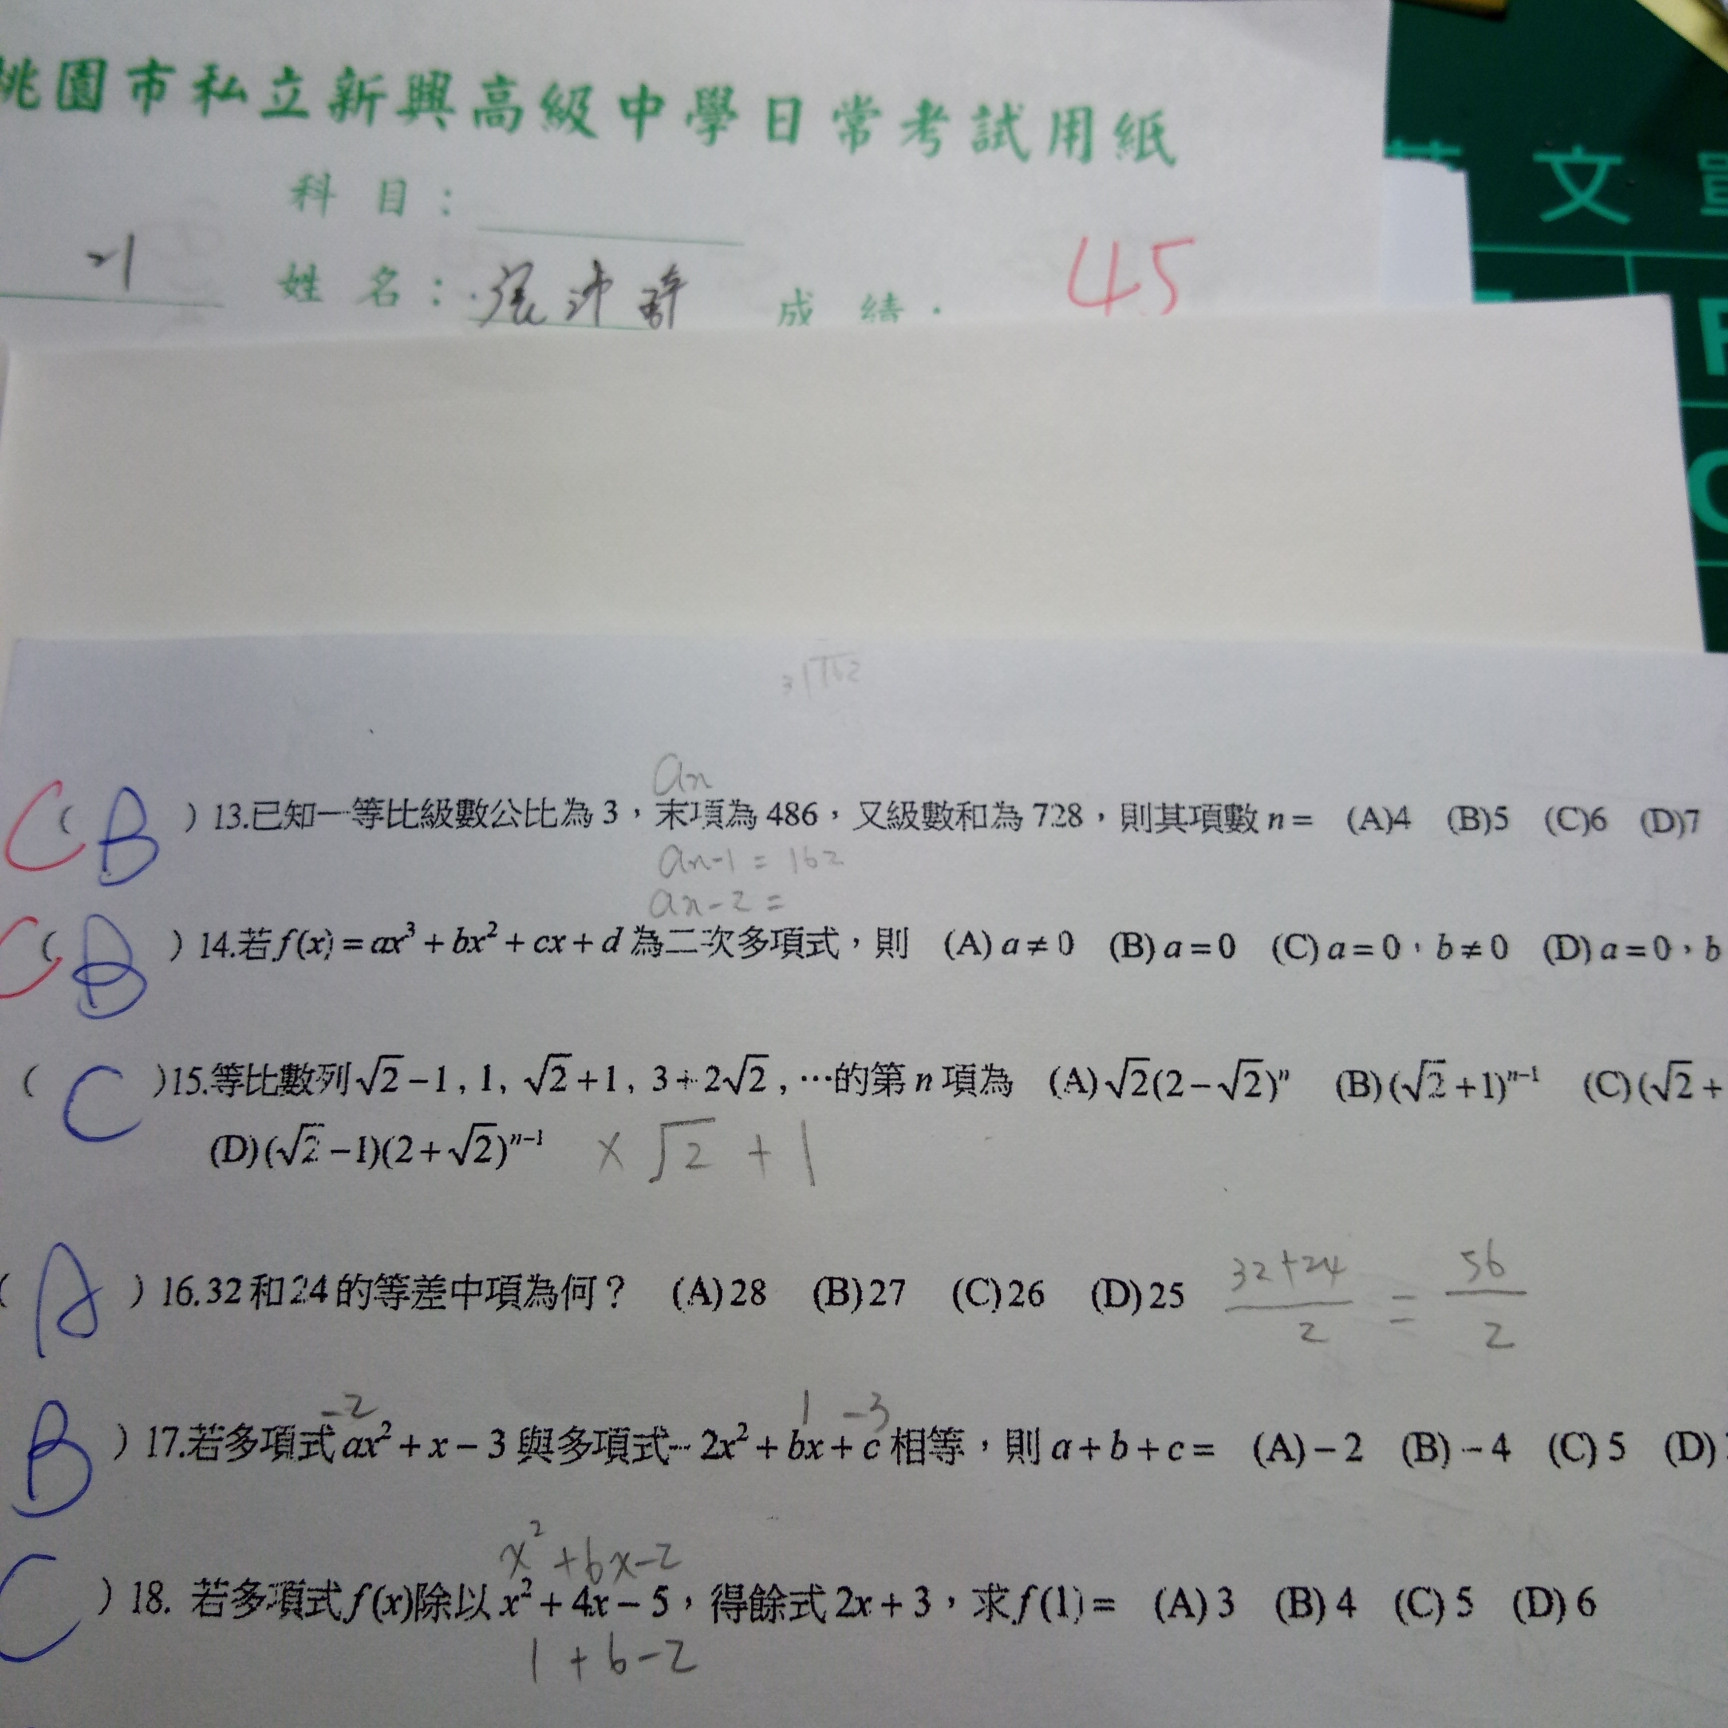 桃園市私立新興高級中學日常考試用紙
文
科目：
21
姓名：張
成績：
45
3 162
an
C B ( ) 13.已知一等比級數公比為 3，末項為 486，又級數和為 728，則其項數 n = (A)4 (B)5 (C)6 (D)7
an-1 = 162
an-2 =
C B ( ) 14.若 f(x) = ax³ + bx² + cx + d 為二次多項式，則 (A) a ≠ 0 (B) a = 0 (C) a = 0，b ≠ 0 (D) a = 0，b
( C )15.等比數列 √2 − 1 , 1, √2 + 1, 3 + 2√2 , …的第 n 項為 (A) √2(2 − √2)ⁿ (B) (√2 + 1)ⁿ⁻¹ (C) (√2 +
(D) (√2 − 1)(2 + √2)ⁿ⁻¹ × √2 + 1
( A ) 16.32 和 24 的等差中項為何？ (A) 28 (B) 27 (C) 26 (D) 25 (32+24)/2 = 56/2
-2 1 -3
B ) 17.若多項式 ax² + x − 3 與多項式 − 2x² + bx + c 相等，則 a + b + c = (A) − 2 (B) − 4 (C) 5 (D)
x² + 6x - 2
C ) 18. 若多項式 f(x)除以 x² + 4x − 5，得餘式 2x + 3，求 f(1) = (A) 3 (B) 4 (C) 5 (D) 6
1 + 6 - 2